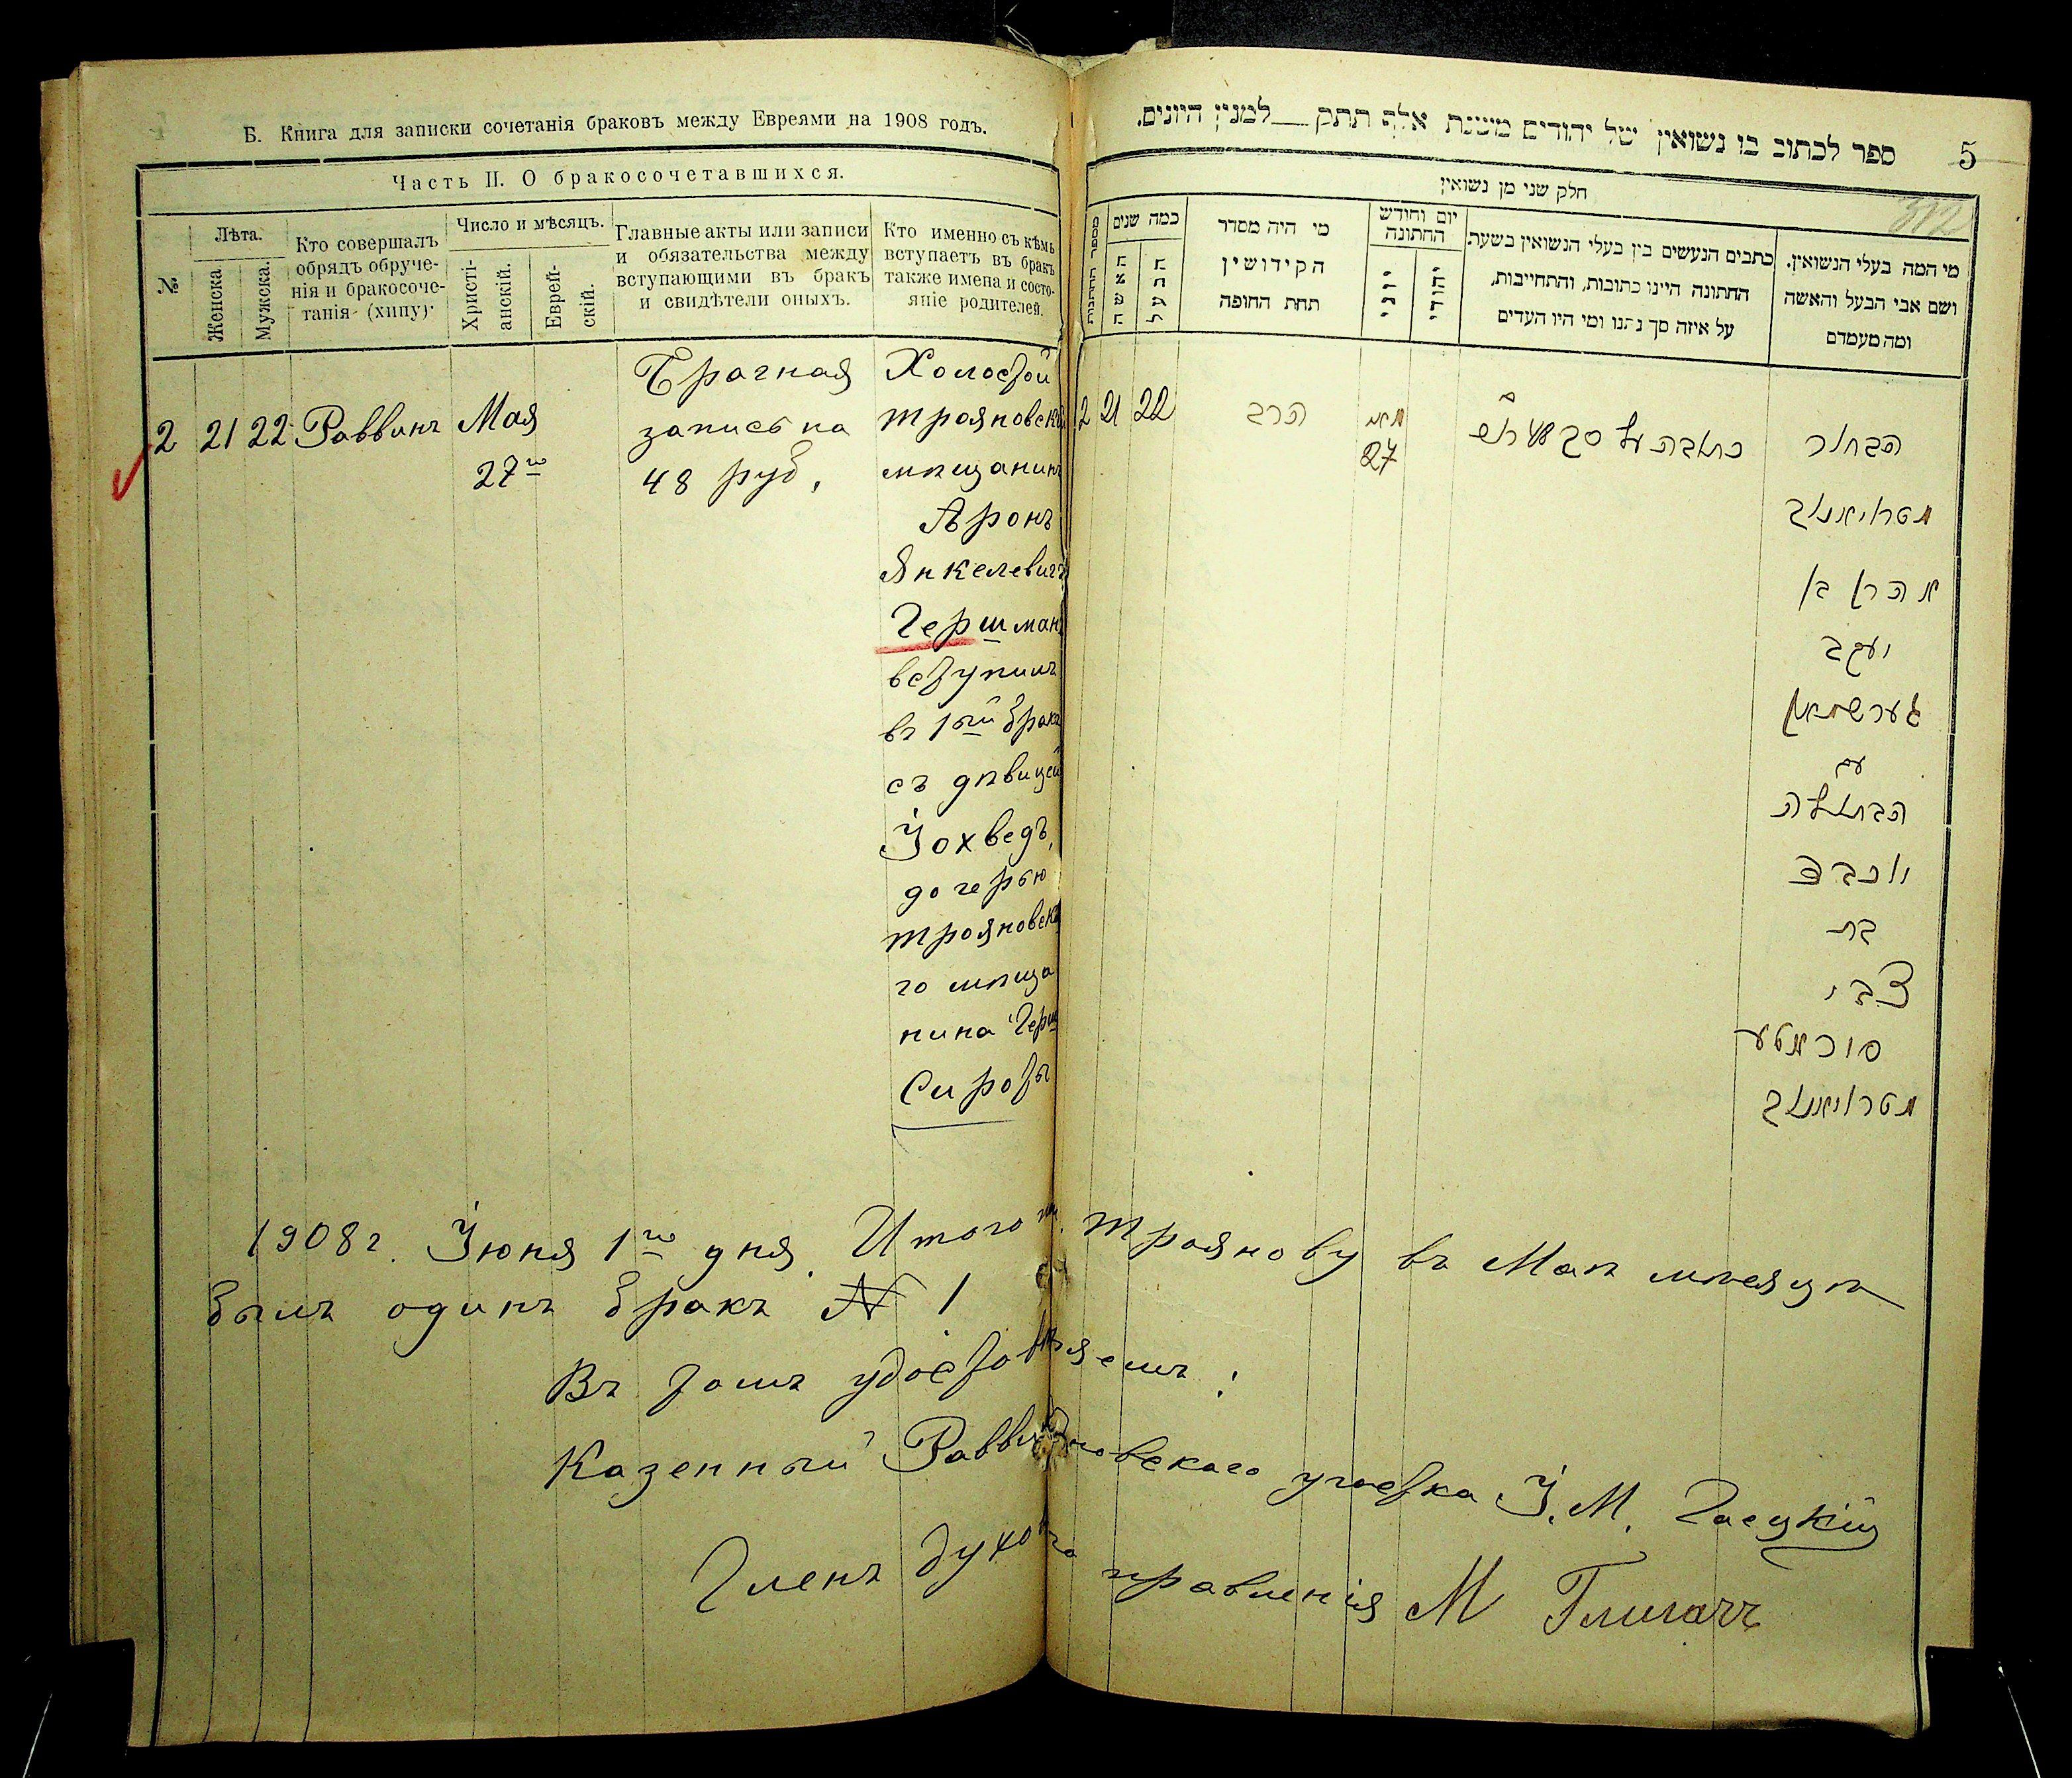 Б. Книга для записки сочетанія браковъ между Евреями на 1908 годъ.
Часть II. О бракосочетавшихся.
№
Лѣта.
Женска
Мужска.
Кто совершалъ
обрядъ обруче-
нія и бракосоче-
танія (хипу)
Число и мѣсяцъ.
Христі-
анскій.
Еврей-
скій.
Главные акты или записи
и обязательства между
вступающими въ бракъ
и свидѣтели оныхъ.
Кто именно съ кѣмъ
вступаетъ въ бракъ
также имена и состо-
яніе родителей.
2 21 22 Раввинъ
Мая
27го
Брачная
запись на
48 руб.
Холостой
трояновскій
мѣщанинъ
Аронъ
Янкелевичъ
Гершманъ
вступилъ
въ 1ый бракъ
съ дѣвицей
Іохведъ,
дочерью
трояновска
го мѣща
нина Герш
Сироты
ספר לכתוב בו נשואין של יהודים משנת אלף תתק__למנין היונים.
5
חלק שני מן נשואין
מספר החתונות
כמה שנים
האשה
הבעל
מי היה מסדר
הקידושין
תחת החופה
יום וחודש
החתונה
יוני
יהודי
כתבים הנעשים בין בעלי הנשואין בשעת
החתונה היינו כתובות, והתחייבות,
על איזה סך נתנו ומי היו העדים
מי המה בעלי הנשואין.
ושם אבי הבעל והאשה
ומה מעמדם
2 21 22
הרב
מאי
27
כתובה על סך 48 רוש
הבחור
מטראיאנוב
אהרן בן
יעקב
גערשמאן
עם
הבתולה
יוכבד
בת
צבי
סיראטע
מטראיאנוב
1908 г. Іюня 1го дня. Итого по м. Троянову въ Маѣ мѣсяцѣ
былъ одинъ бракъ № 1
Въ томъ удостовѣряемъ:
Казенный Раввинъ Трояновскаго участка І. М. Гасцкій
Членъ духовнаго правленія М